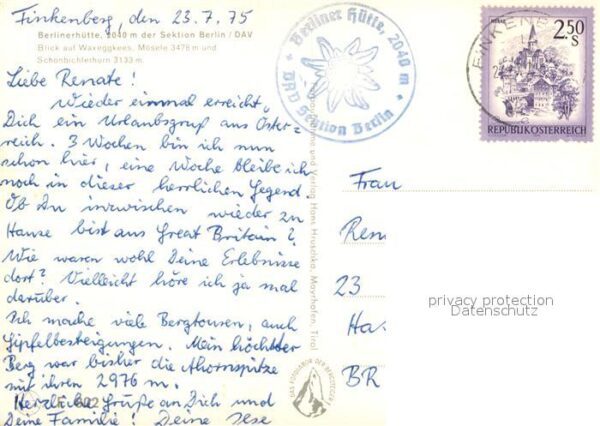 Finkenberg, den 23.7.75
Berlinerhütte, 2040 m der Sektion Berlin / DAV
Blick auf Waxeggkees, Mösele 3478 m und
Schönbichlerhorn 3133 m
Liebe Renate!
Wieder einmal erreicht
Dich ein Urlaubsgruß aus Öster=
reich. 3 Wochen bin ich nun
schon hier, eine Woche bleibe ich
noch in dieser herrlichen Gegend.
Ob Du inzwischen wieder zu
Hause bist aus Great Britain?
Wie waren wohl Deine Erlebnisse
dort? Vielleicht höre ich ja mal
darüber.
Ich mache viele Bergtouren, auch
Gipfelbesteigungen. Mein höchster
Berg war bisher die Ahornspitze
mit ihren 2976 m.
Herzliche Grüße an Dich und
Deine Familie! Deine Ilse
Berliner Hütte, 2040 m
DAV Sektion Berlin
und Verlag Hans Hruschka, Mayrhofen, Tirol
FINKENBE
2.50
S
REPUBLIK ÖSTERREICH
Frau
Ren
23
Ha
BR
privacy protection
Datenschutz